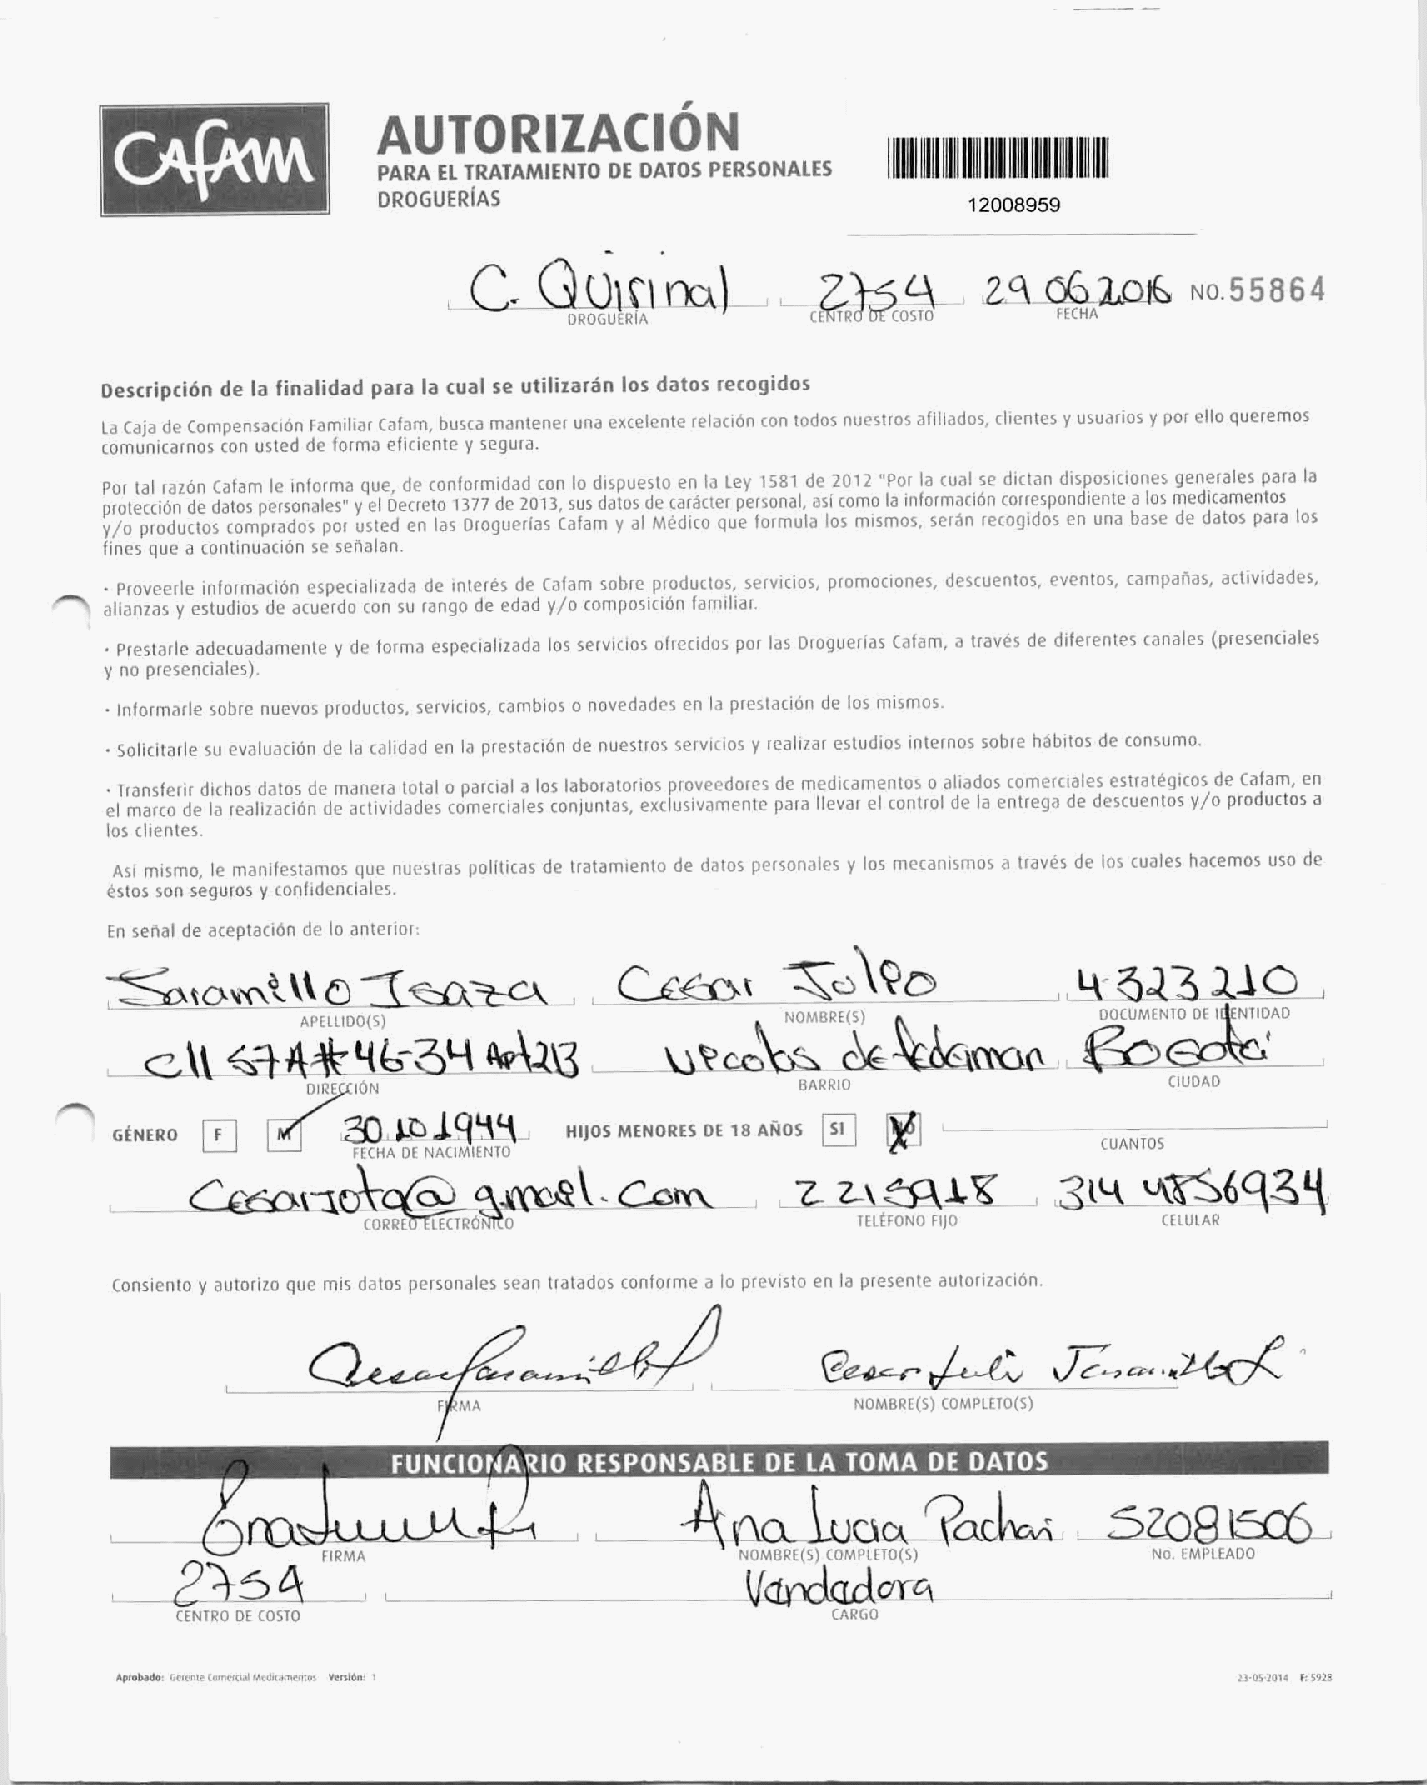 CAFAM
AUTORIZACIÓN
PARA EL TRATAMIENTO DE DATOS PERSONALES
DROGUERÍAS
12008959
C. Quirinal 2754 29 06 2016 NO.55864
DROGUERÍA CENTRO DE COSTO FECHA
Descripción de la finalidad para la cual se utilizarán los datos recogidos
La Caja de Compensación Familiar Cafam, busca mantener una excelente relación con todos nuestros afiliados, clientes y usuarios y por ello queremos
comunicarnos con usted de forma eficiente y segura.
Por tal razón Cafam le informa que, de conformidad con lo dispuesto en la Ley 1581 de 2012 "Por la cual se dictan disposiciones generales para la
protección de datos personales" y el Decreto 1377 de 2013, sus datos de carácter personal, así como la información correspondiente a los medicamentos
y/o productos comprados por usted en las Droguerías Cafam y al Médico que formula los mismos, serán recogidos en una base de datos para los
fines que a continuación se señalan.
· Proveerle información especializada de interés de Cafam sobre productos, servicios, promociones, descuentos, eventos, campañas, actividades,
alianzas y estudios de acuerdo con su rango de edad y/o composición familiar.
· Prestarle adecuadamente y de forma especializada los servicios ofrecidos por las Droguerías Cafam, a través de diferentes canales (presenciales
y no presenciales).
· Informarle sobre nuevos productos, servicios, cambios o novedades en la prestación de los mismos.
· Solicitarle su evaluación de la calidad en la prestación de nuestros servicios y realizar estudios internos sobre hábitos de consumo.
· Transferir dichos datos de manera total o parcial a los laboratorios proveedores de medicamentos o aliados comerciales estratégicos de Cafam, en
el marco de la realización de actividades comerciales conjuntas, exclusivamente para llevar el control de la entrega de descuentos y/o productos a
los clientes.
Así mismo, le manifestamos que nuestras políticas de tratamiento de datos personales y los mecanismos a través de los cuales hacemos uso de
éstos son seguros y confidenciales.
En señal de aceptación de lo anterior:
Jaramillo Isaza Cesar Julio 4323210
APELLIDO(S) NOMBRE(S) DOCUMENTO DE IDENTIDAD
Cll 57A # 46-34 Apt 213 Bogotá
DIRECCIÓN BARRIO CIUDAD
GÉNERO F M 30 10 1944 HIJOS MENORES DE 18 AÑOS SI NO
FECHA DE NACIMIENTO CUANTOS
Cesarjota@gmail.com 2215918 314 4856934
CORREO ELECTRÓNICO TELÉFONO FIJO CELULAR
Consiento y autorizo que mis datos personales sean tratados conforme a lo previsto en la presente autorización.
Cesar Julio Jaramillo I
FIRMA NOMBRE(S) COMPLETO(S)
FUNCIONARIO RESPONSABLE DE LA TOMA DE DATOS
Ana Lucia Pachon 52081506
FIRMA NOMBRE(S) COMPLETO(S) No. EMPLEADO
2754 Vendedora
CENTRO DE COSTO CARGO
Aprobado: Gerente Comercial Medicamentos Versión: 1 23-05-2014 F: 5928